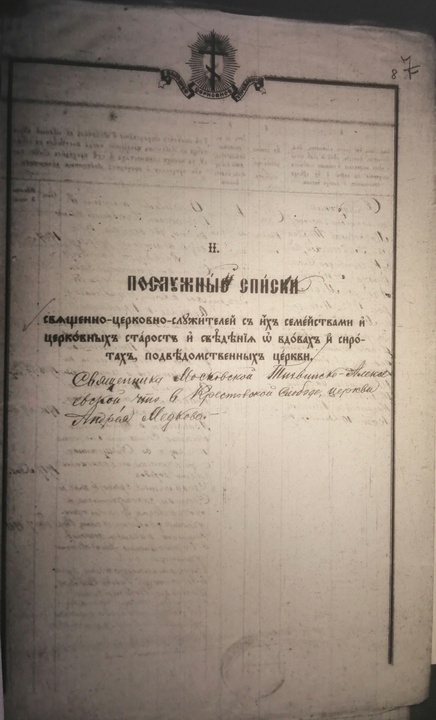 8 7
ЦЕРКОВНО
II.
ПОСЛУЖНЫЕ СПИСКИ
священно-церковно-служителей съ и҆́хъ семействами и҆
церковныхъ старостъ и҆ свѣдѣнїѧ ѡ҆ вдовахъ и҆ сиро-
тахъ, подвѣдомственныхъ церкви.
Священника Московской Тихвинско-
что в Крестовской Слободе, церкви
Андрея Медкова.